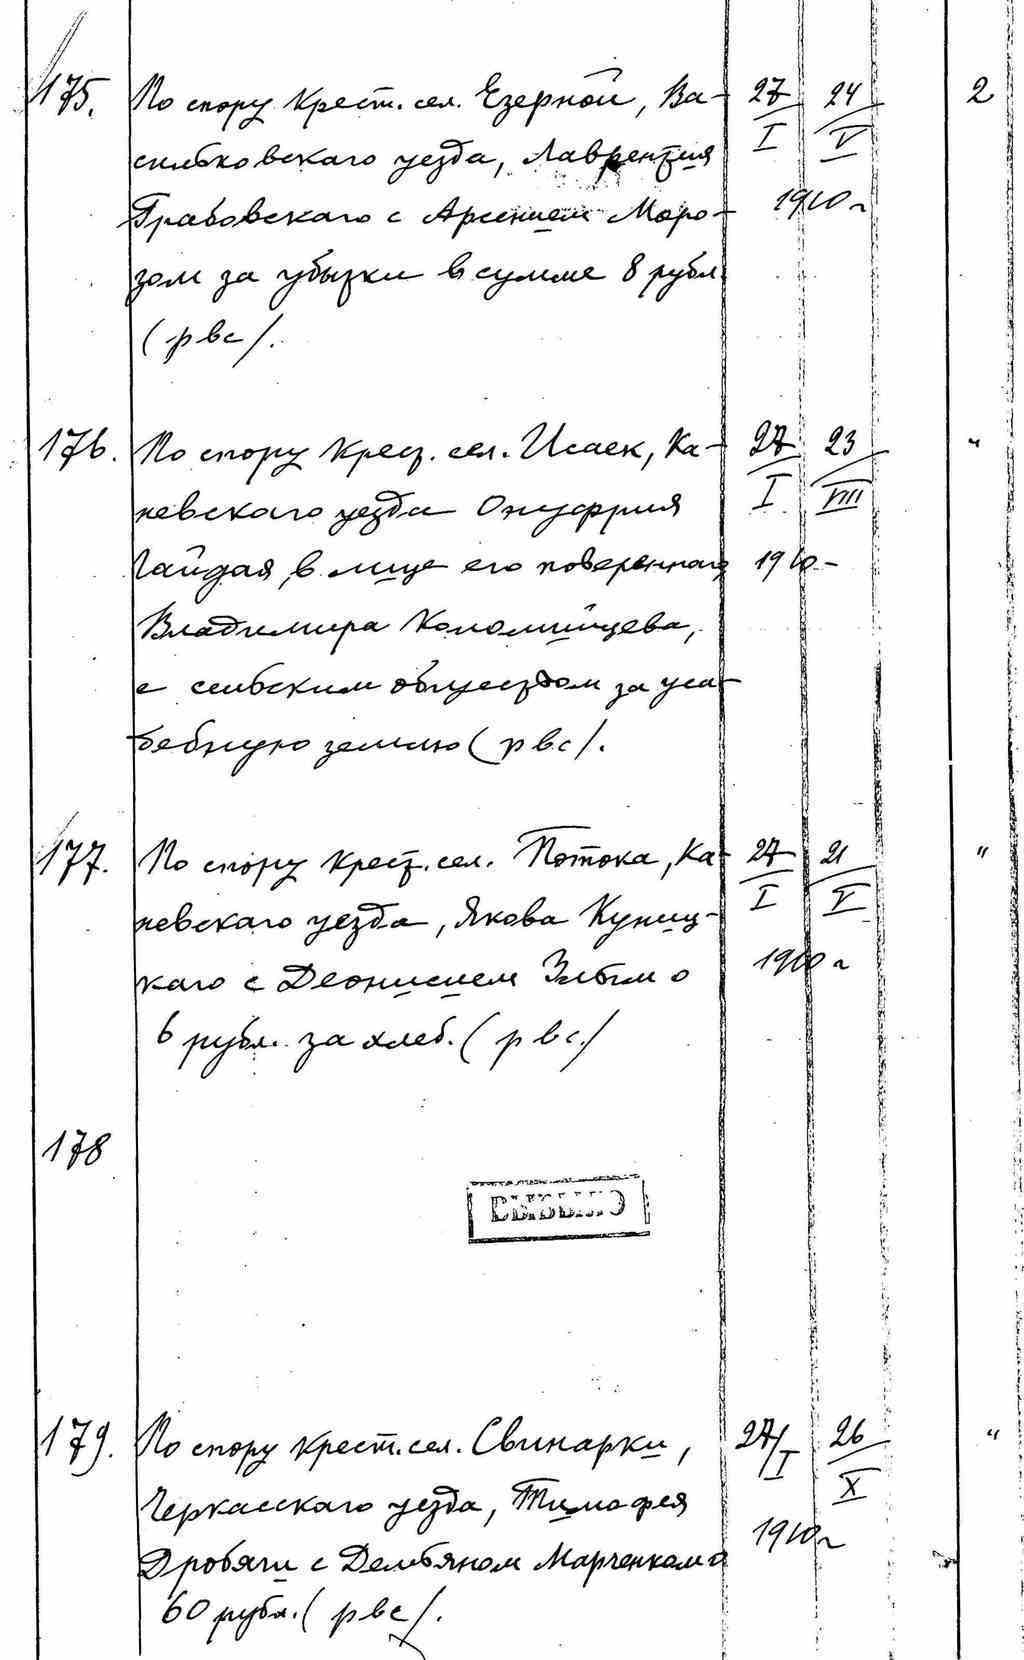 175. По спору крест. сел. Езерной, Ва- 27 24 2
сильковскаго уезда, Лаврентия I V
Грабовскаго с Арсением Моро- 1910 г
зом за убытки в сумме 8 рубл.
(рвс).
176. По спору крест. сел. Исаек, Ка- 27 23 "
невскаго уезда Онуфрия I VIII
Гайдая, в лице его повереннаго 1910 -
Владимира Коломийцева,
с сельским обществом за уса-
дебную землю (рвс).
177. По спору крест. сел. Потока, Ка- 27 21 "
невскаго уезда, Якова Куниц- I V
каго с Деонисием 1910 г
6 рубл. за хлеб. (рвс.)
178
ВЫБЫЛО
179. По спору крест. сел. Свинарки, 27/I 26 "
Черкасскаго уезда, Тимофея X
Дробяги с Демьяном Марченком о 1910 г
60 рубл. (рвс).